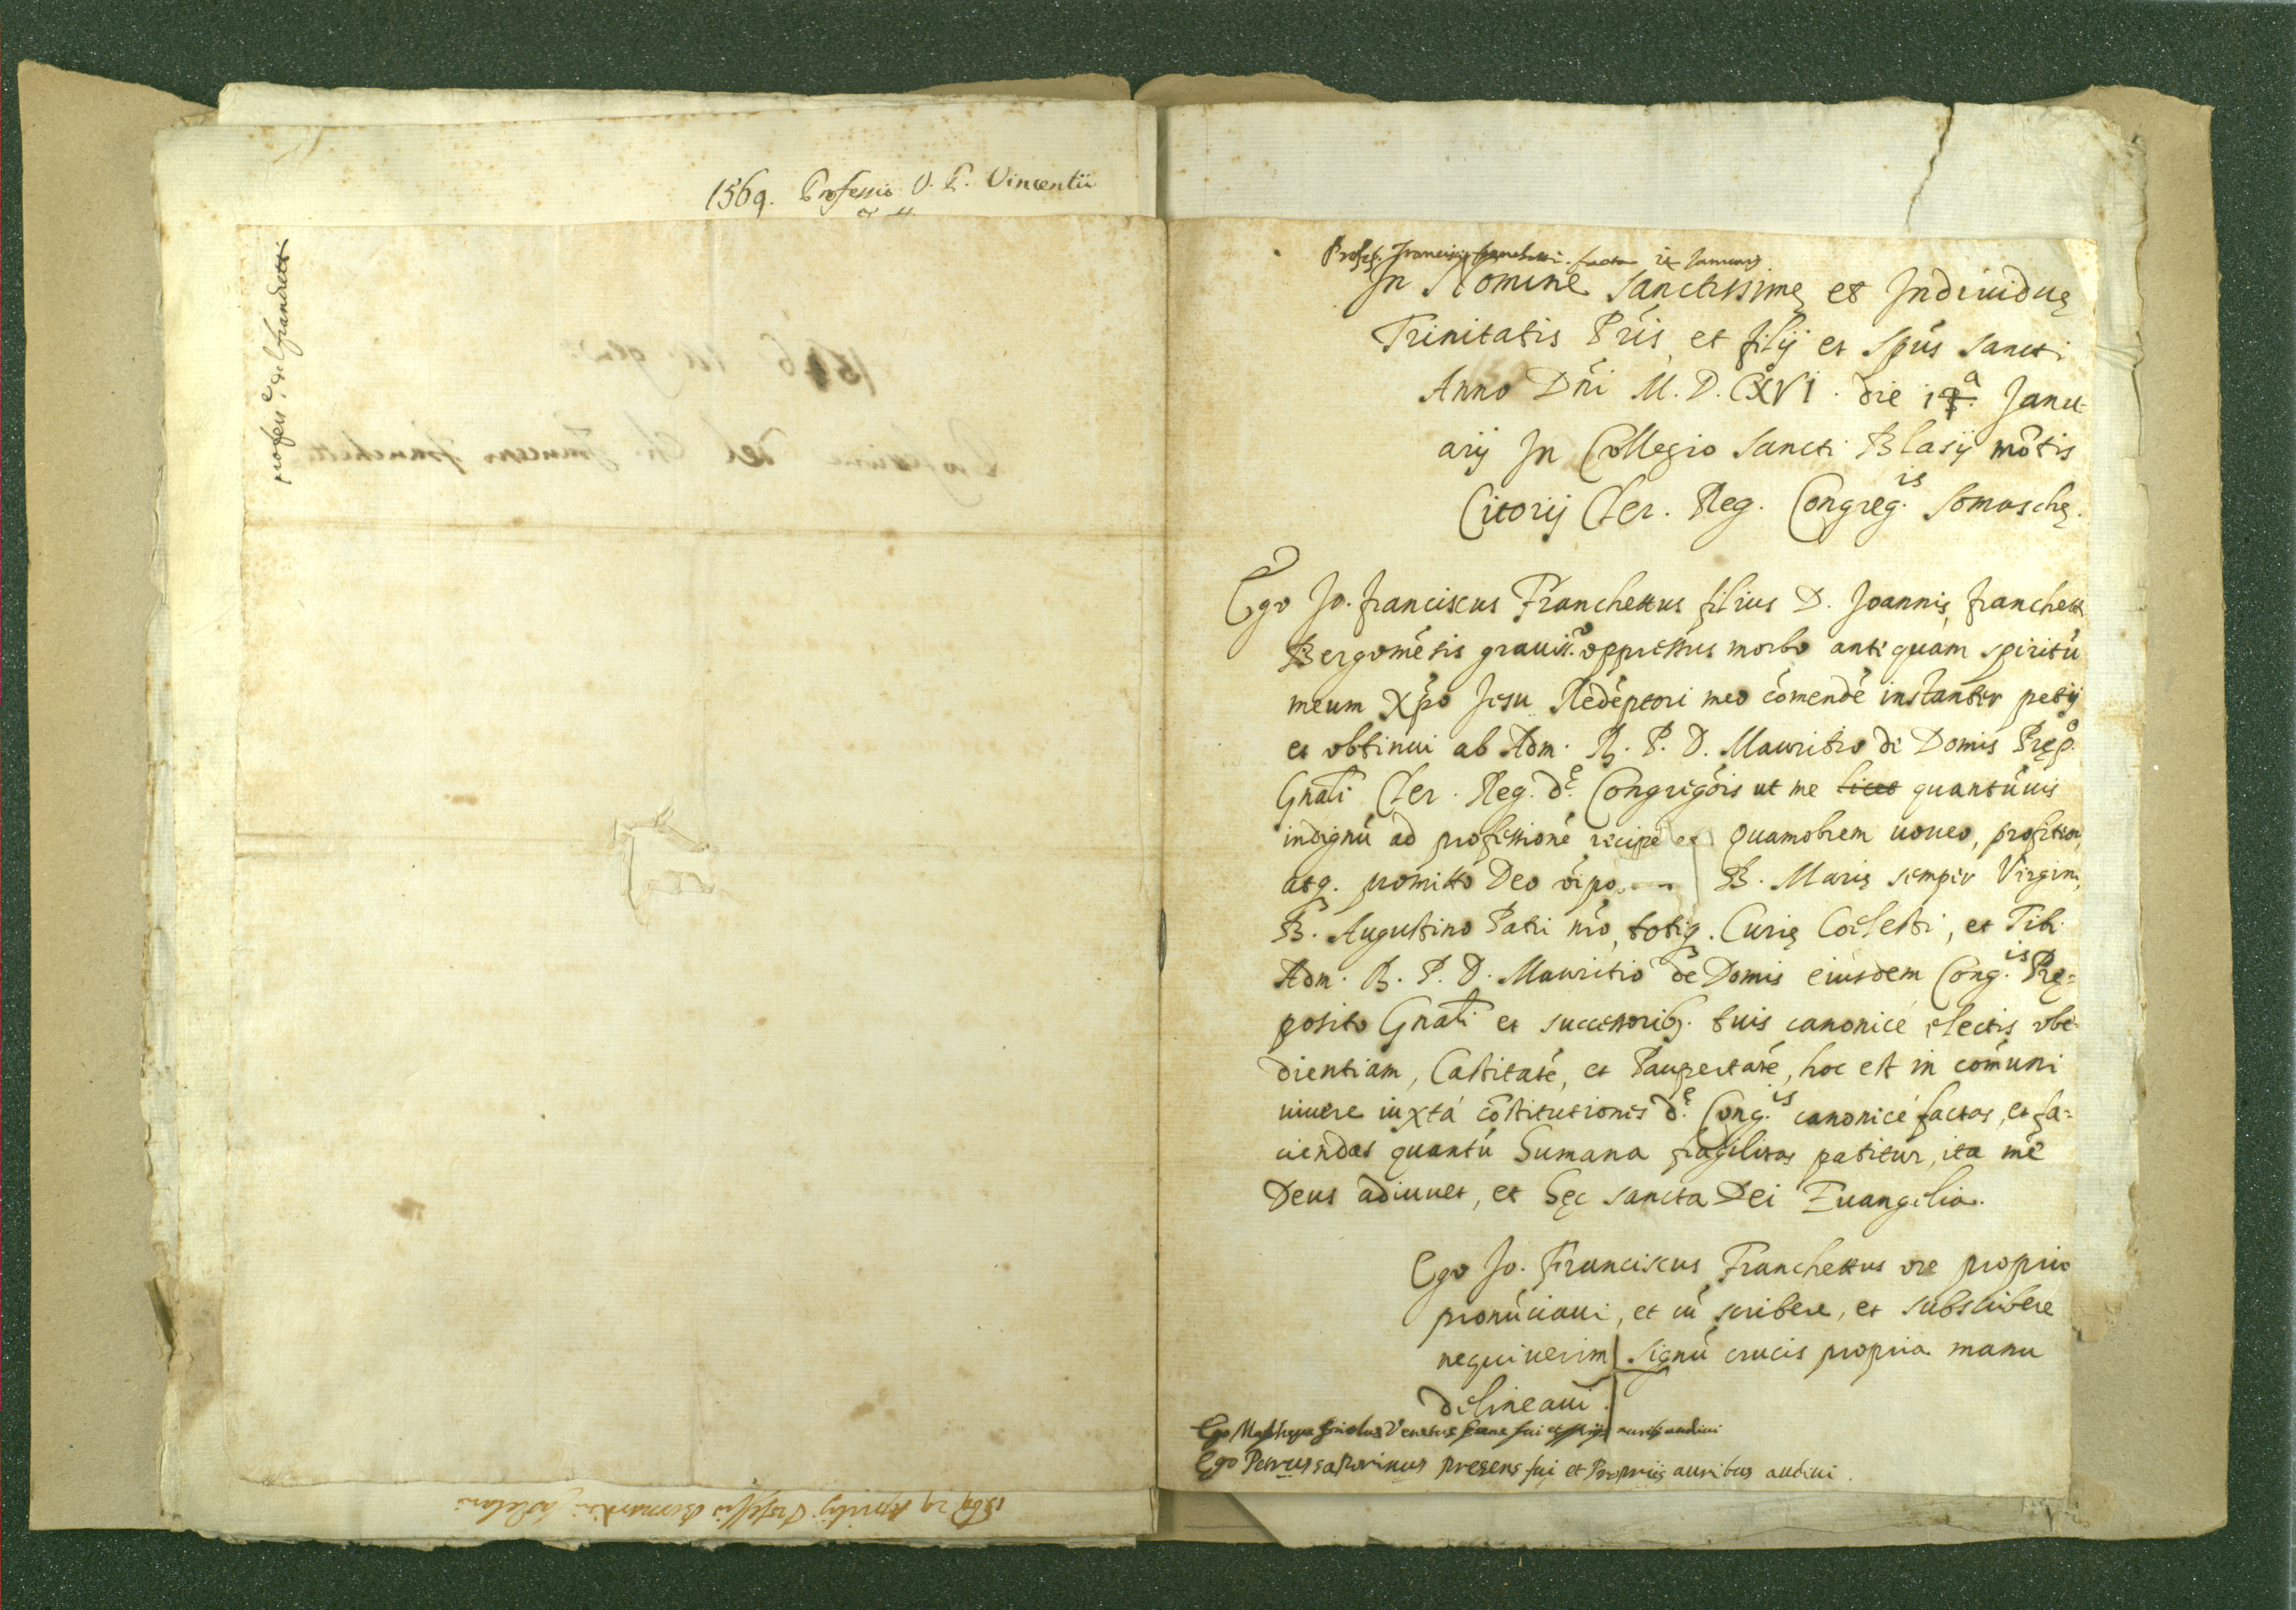 1569. Professio V. P. Vincentii
profess.e del franchetti
Profess. Francisci franchetti facta Januarij
In Nomine Sanctissimę et Indiuiduę
Trinitatis Pris et filij et Spūs Sancti
Anno Dñi M. D. CXVI. die Janu-
arij In Collegio Sancti Blasij mōtis
Citorij Cler. Reg. Congreg.is Somaschę.
Ego Jo. Franciscus Franchettus filius D. Joannis franchetti
Bergomēsis grauiss.o oppressus morbo antiquam spiritū
meum Xp̄o Jesu Redēptori meo cōmendē instanter petij
et obtinui ab Adm. R. P. D. Mauritio de Domis Pręp.o
Gnāli Cler. Reg. d.e Congregōis ut me licet quantūuis
indignū ad professionē recipe Quamobrem uoueo, profiteor,
atq. promitto Deo oīpo B. Marię semper Virgini,
B. Augustino Patri nr̄o, totiq. Curię Coelesti, et Tibi
Adm. R. P. D. Mauritio de Domis eiusdem Cong.is Prę=
posito Gnāli et successorib. tuis canonicé electis obe-
dientiam, Castitatē, et Paupertatē, hoc est in cōmuni
uiuere iuxta cōstitutiones d.e Cong.is canonicé factas, et fa=
ciendas quantū humana fragilitas patitur, ita me
Deus adiuuet, et hęc sancta Dei Euangelia.
Ego Jo. Franciscus Franchettus ore proprio
pronūciaui, et cū scribere, et subscribere
nequiuerim signū crucis propria manu
delineaui.
Ego Venetus fui et aurib. audiui
Ego Petrus presens fui et Proprijs auribus audiui.
1569 29 Aprilis Professio